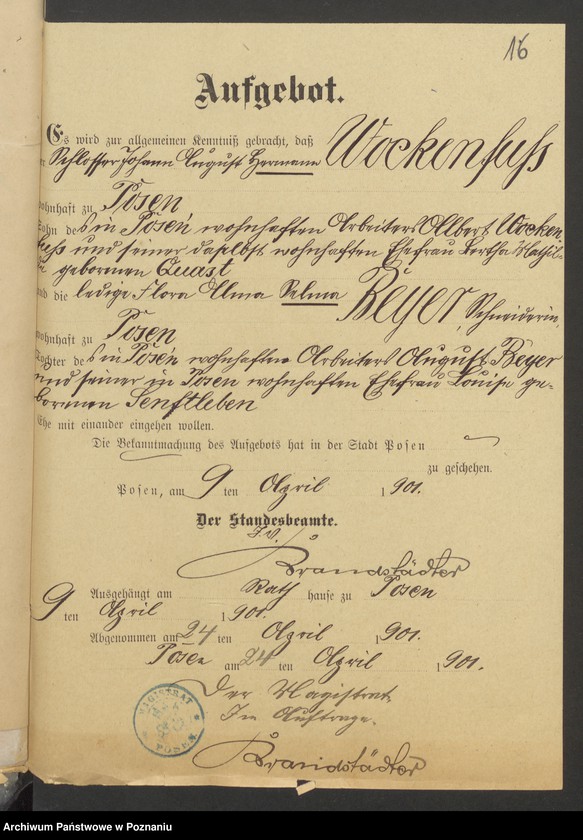 16
Aufgebot.
Es wird zur allgemeinen Kenntniß gebracht, daß
Schlosser Johann August Hermann Wockenfuss
wohnhaft zu Posen
Sohn des in Posen wohnhaften Arbeiters Albert Wocken
fuss und seiner daselbst wohnhaften Ehefrau Bertha Mathil-
de geborenen Quast
und die ledige Flora Alma Selma Beyer, Schneiderin,
wohnhaft zu Posen
Tochter des in Posen wohnhaften Arbeiters August Beyer
und seiner in Posen wohnhaften Ehefrau Louise ge-
borenen Senftleben
Ehe mit einander eingehen wollen.
Die Bekanntmachung des Aufgebots hat in der Stadt Posen
zu geschehen.
Posen, am 9 ten April 1901.
Der Standesbeamte.
I. V.
Brandstädter
Ausgehängt am Rath hause zu Posen
9 ten April 1901.
Abgenommen am 24 ten April 1901.
Posen am 24 ten April 1901.
Der Magistrat
Im Auftrage.
MAGISTRAT
POSEN
Brandstädter
Archiwum Państwowe w Poznaniu